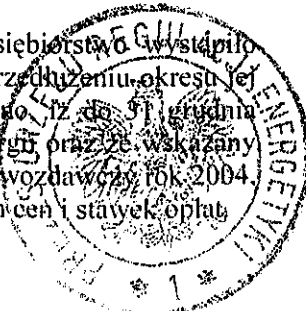 siębiorstwo wystąpiło
rzedłużeniu okresu jej
no, iż do 31 grudnia
rgii oraz że wskazany
wozdawczy rok 2004,
n cen i stawek opłat,
URZĘDU REGULACJI ENERGETYKI
* 1 *